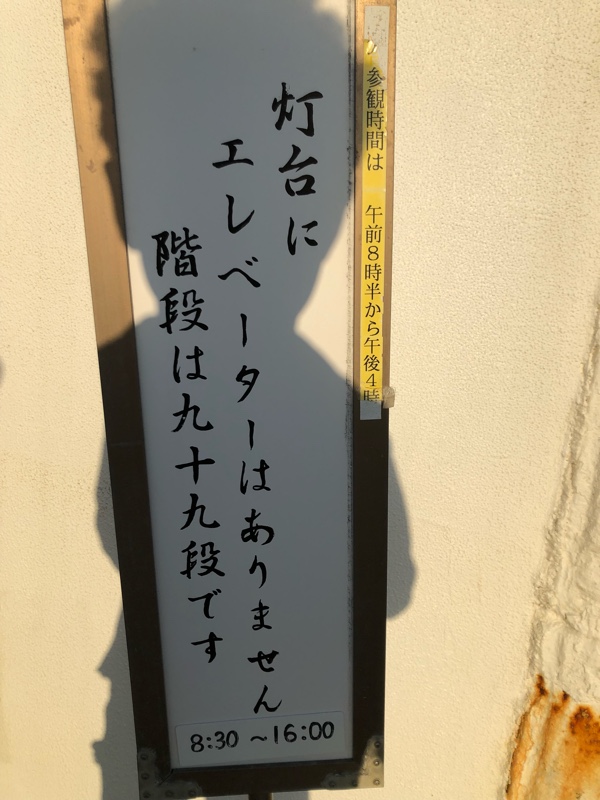 参観時間は 午前8時半から午後4時
灯台に
エレベーターはありません
階段は九十九段です
8:30 ～16:00